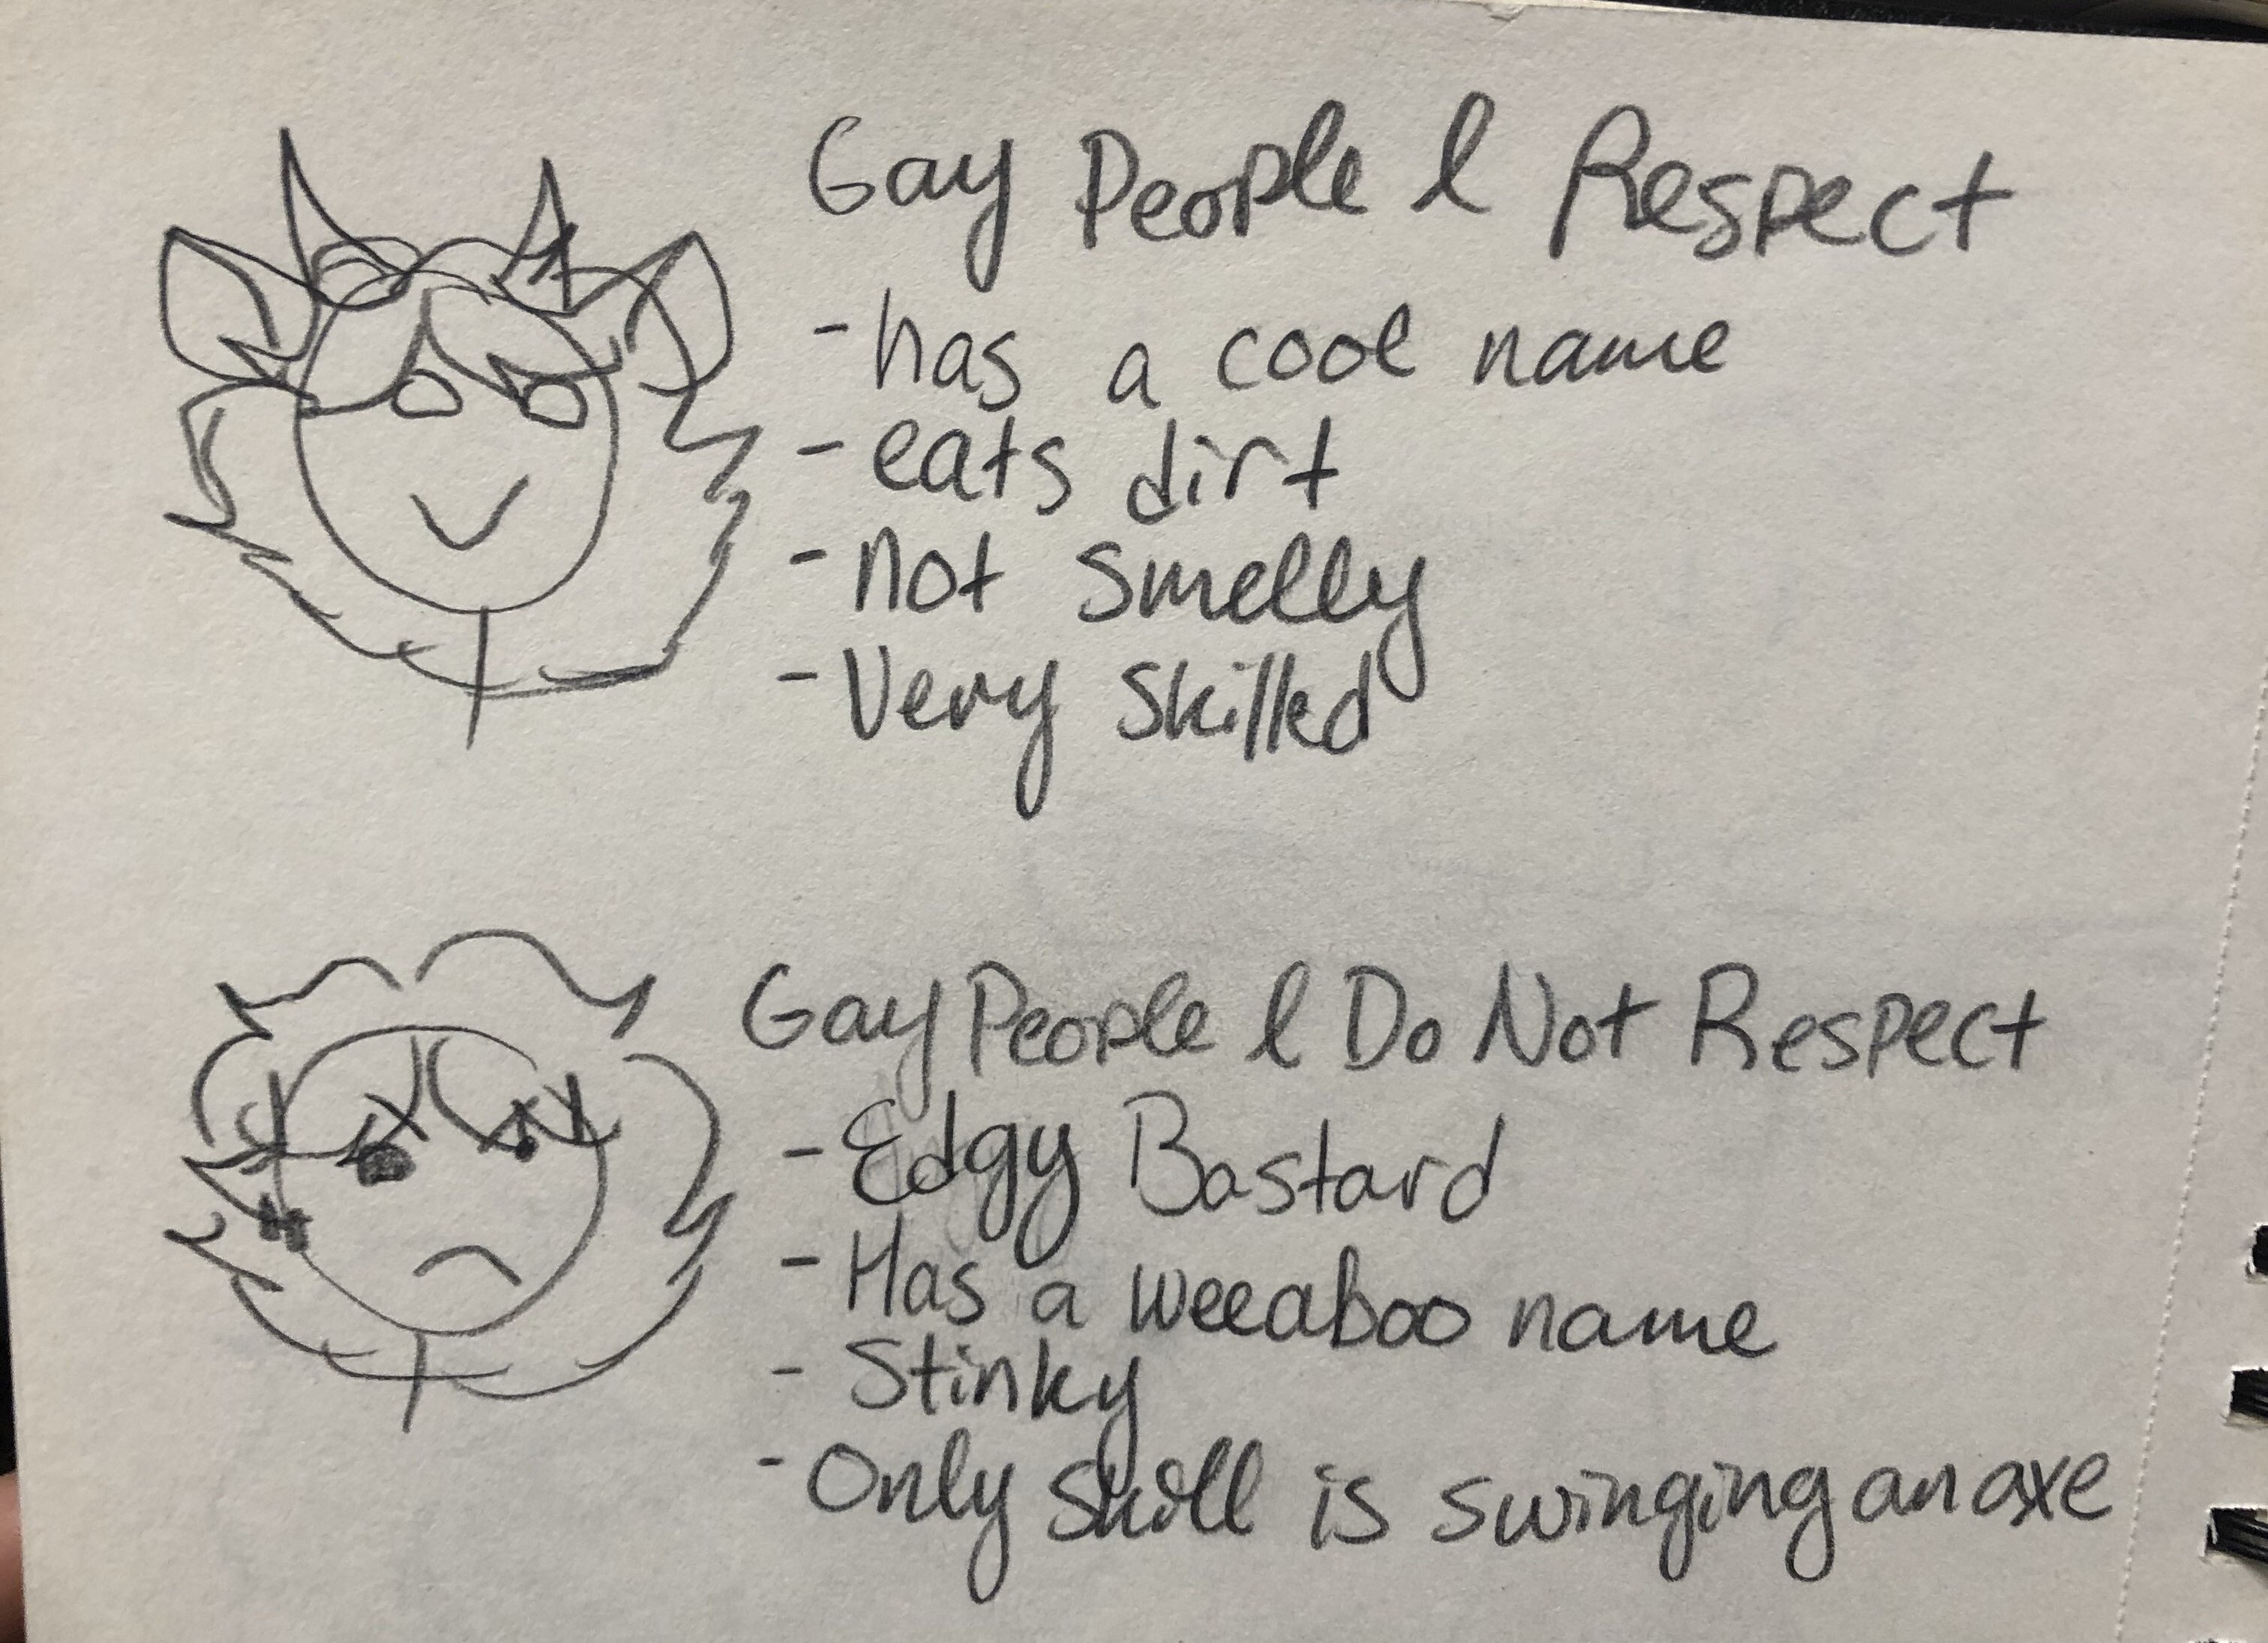 Gay People I Respect
- has a cool name
- eats dirt
- not smelly
- Very skilled
Gay People I Do Not Respect
- Edgy Bastard
- Has a weeaboo name
- Stinky
- Only skill is swinging an axe